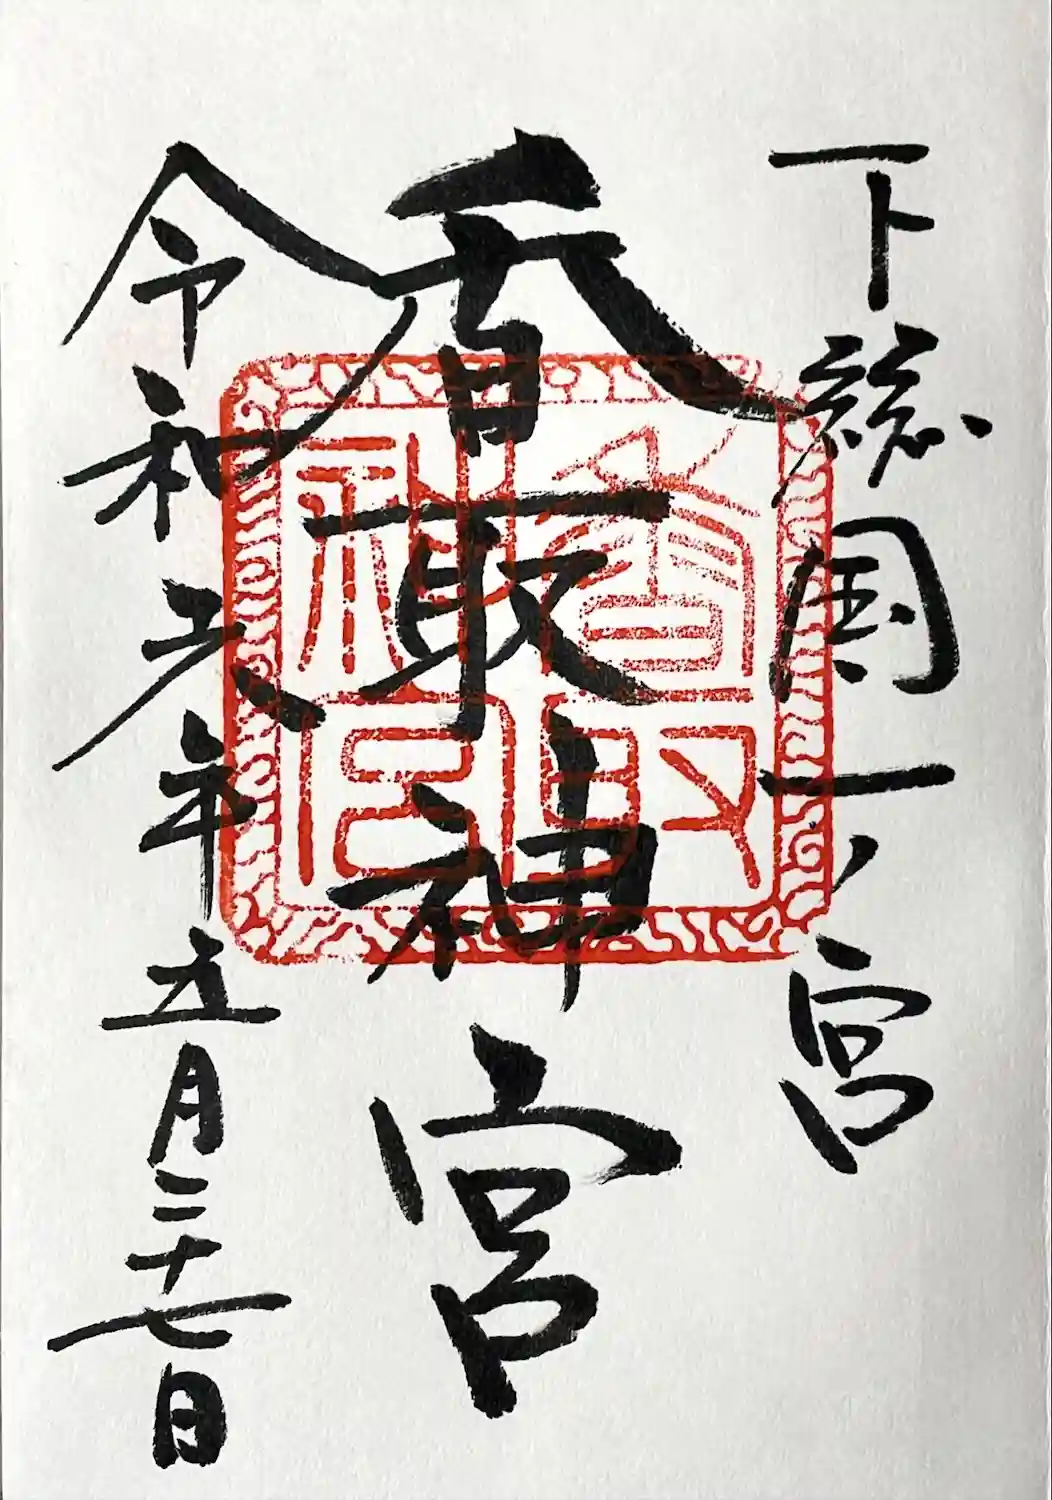 下総国一ノ宮
香取神宮
香取神宮
令和元年五月二十七日